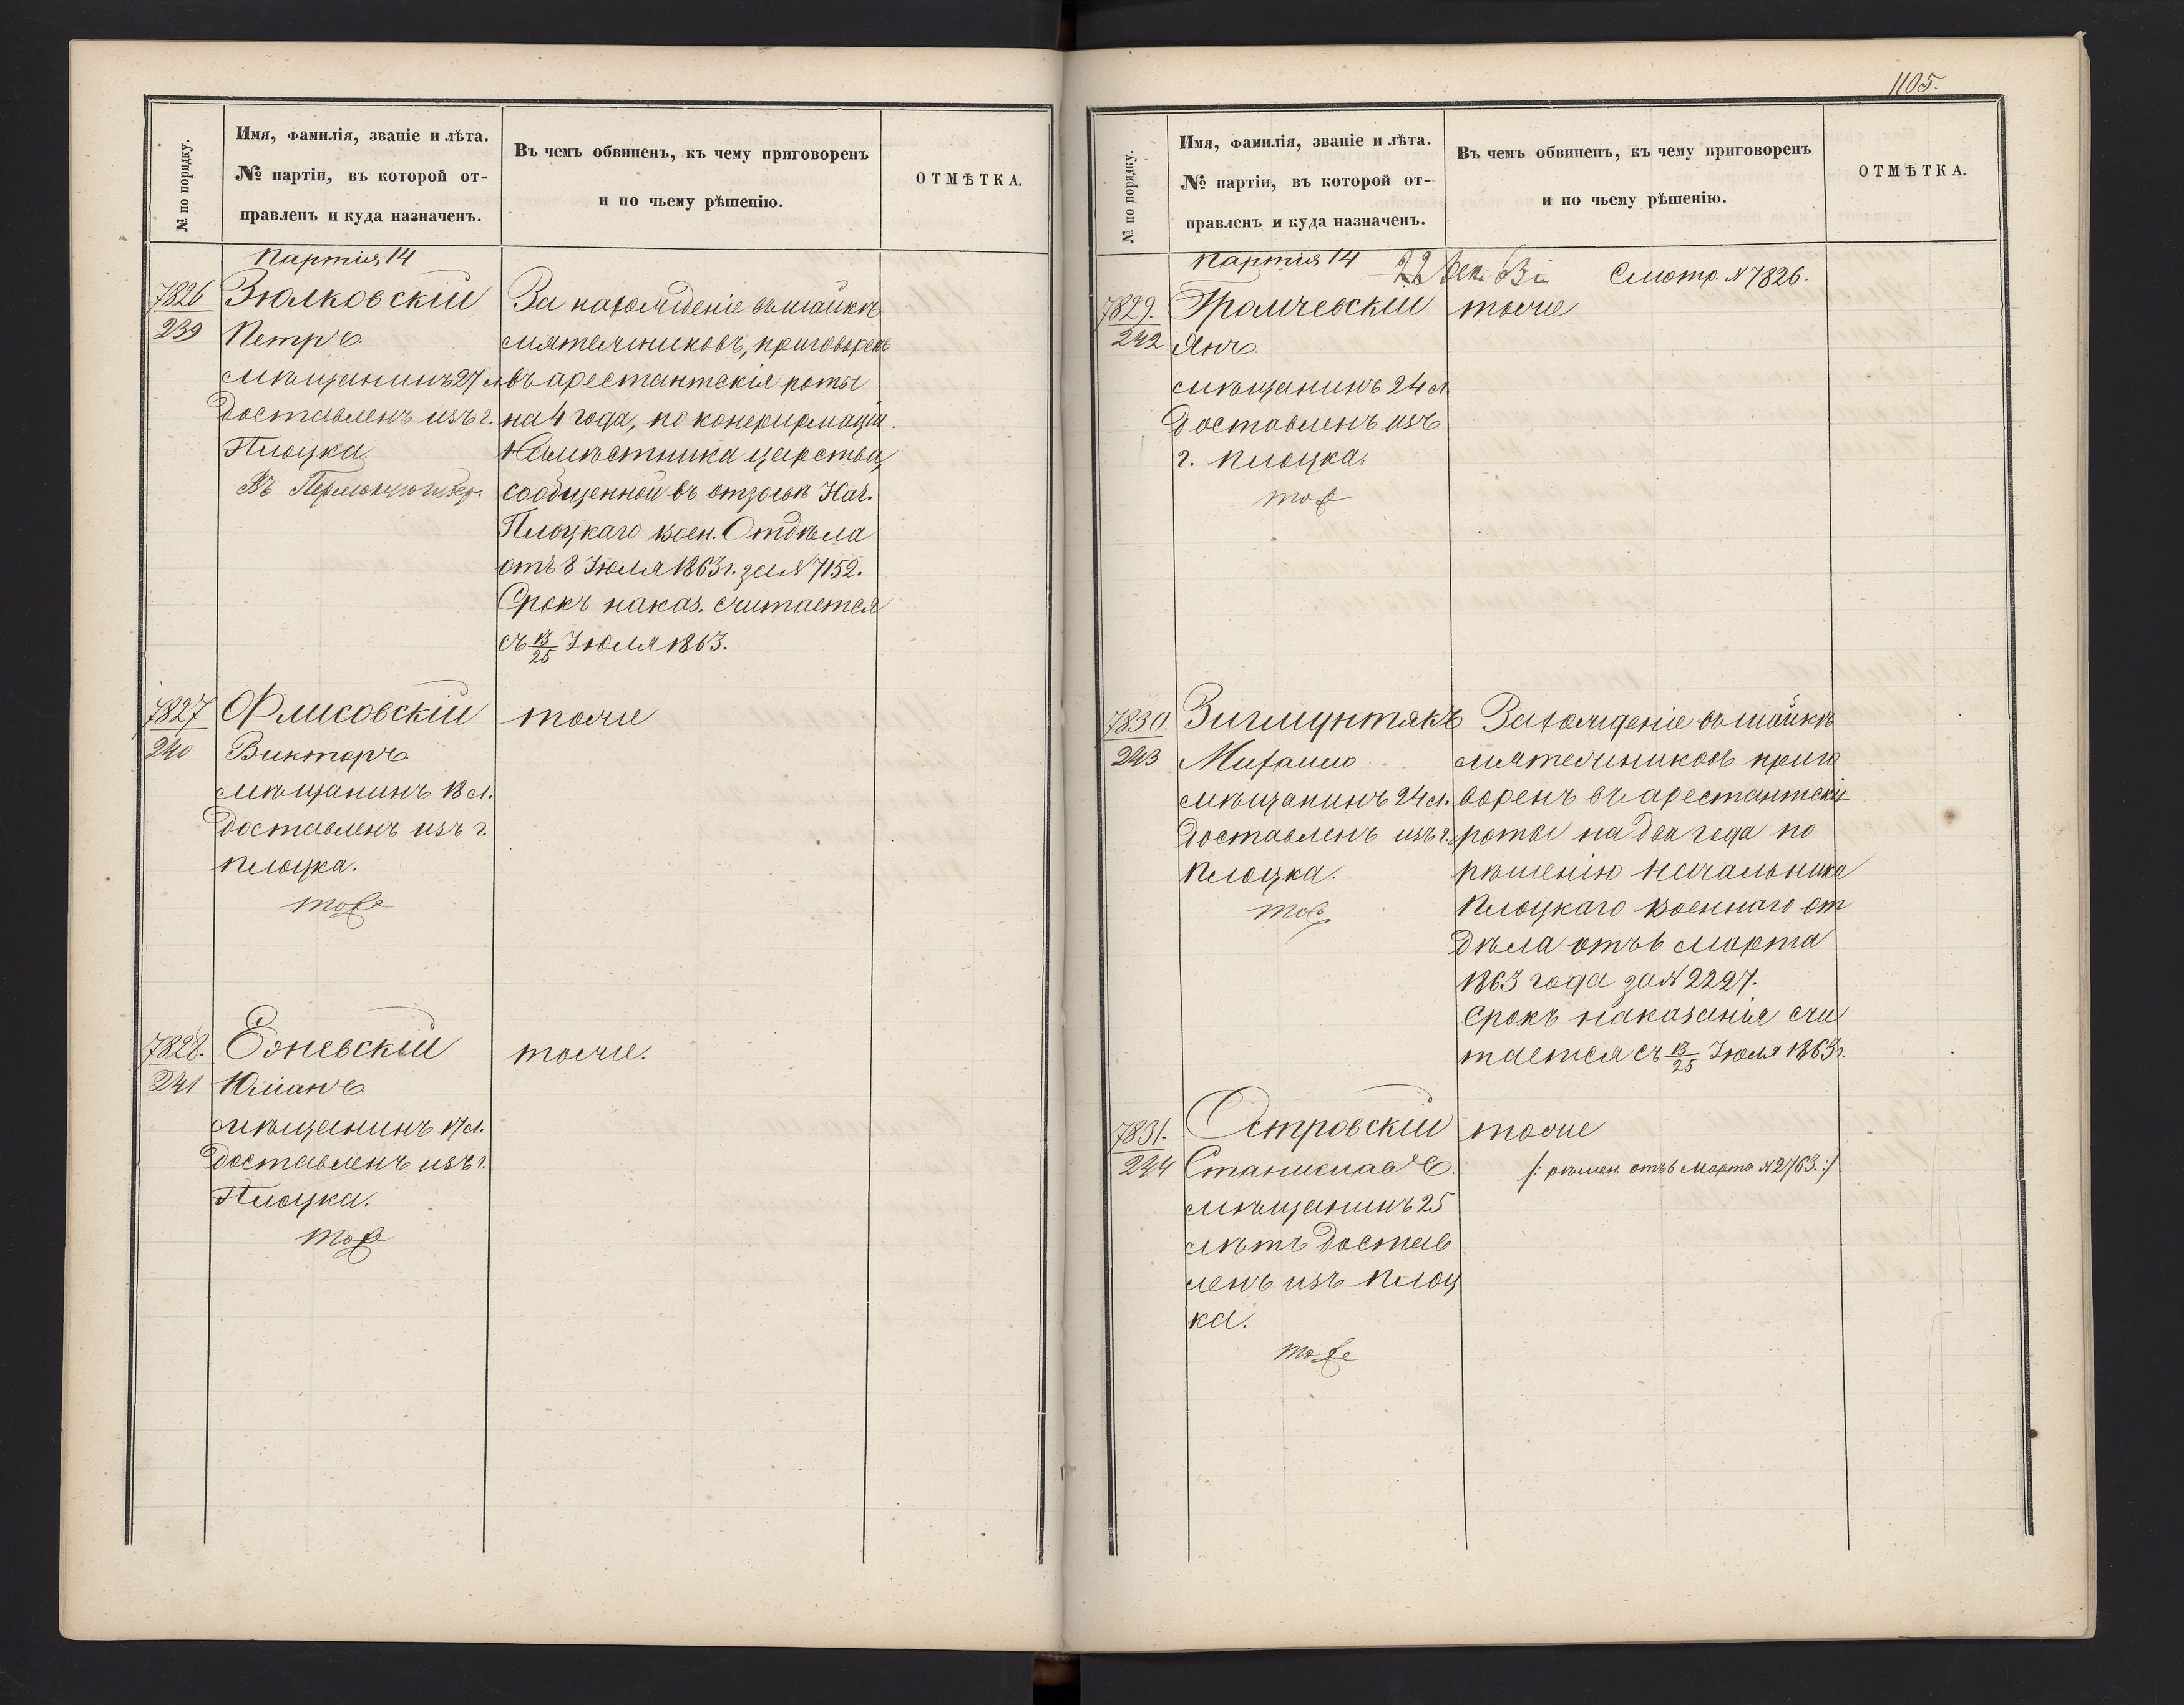 № по порядку.
Имя, фамилія, званіе и лѣта.
№ партіи, въ которой от-
правленъ и куда назначенъ.
Въ чемъ обвиненъ, къ чему приговоренъ
и по чьему рѣшенію.
ОТМѢТКА.
Партія 14
7826
239
Зюлковскій
Петръ
мѣщанинъ 27 л
доставленъ изъ г.
Плоцка.
Въ губер.
За нахожденіе въ шайкѣ
мятежниковъ, приговоренъ
въ арестантскія роты
на 4 года, по конфирмаціи
Намѣстника царства,
сообщенной въ отзывѣ Нач.
Плоцкаго воен. Отдѣла
отъ 8 Іюля 1863 г. за № 7152.
Срокъ наказ. считается
съ 13/25 Іюля 1863.
7827
240
Флисовскій
Викторъ
мѣщанинъ 18 л.
доставленъ изъ г.
Плоцка.
тоже
тоже
7828.
241
Езневскій
Юліанъ
мѣщанинъ 17 л.
доставленъ изъ г.
Плоцка.
тоже
тоже.
1105.
№ по порядку.
Имя, фамилія, званіе и лѣта.
№ партіи, въ которой от-
правленъ и куда назначенъ.
Въ чемъ обвиненъ, къ чему приговоренъ
и по чьему рѣшенію.
ОТМѢТКА.
Партія 14
Смотр. № 7826.
7829.
242
Громчевскій
Янъ
мѣщанинъ 24 л
Доставленъ изъ
г. Плоцка.
тоже
тоже
7830.
243
Зигмунтякъ
Михаилъ
мѣщанинъ 24 л.
доставленъ изъ г.
Плоцка.
тоже
За хожденіе въ шайкѣ
мятежниковъ приго
воренъ въ арестантскія
роты на два года по
рѣшенію начальника
Плоцкаго военнаго от
дѣла отъ 6 марта
1863 года за № 2227.
Срокъ наказанія счи
тается съ 13/25 Іюля 1863 г.
7831.
244
Островскій
Станиславъ
мѣщанинъ 25
лѣтъ достав
ленъ изъ Плоц
ка.
тоже
тоже
/: рѣшен. отъ 6 Марта № 2763. :/